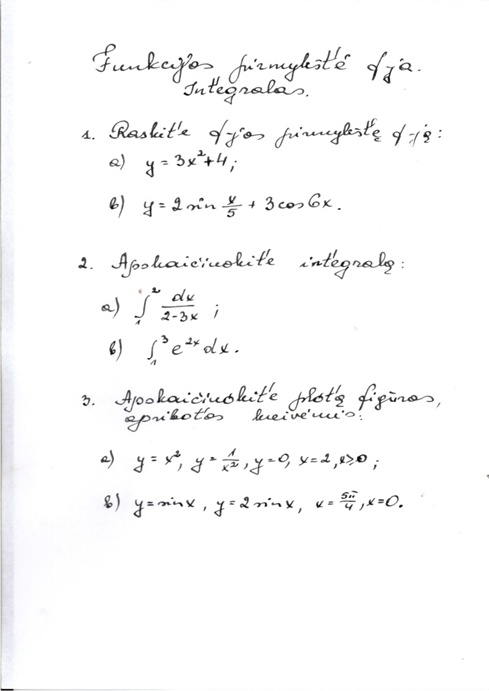 Funkcijos pirmykštė f-ja.
Integralas.
1. Raskite f-jos pirmykštę f-ją:
a) y = 3x²+4;
b) y = 2 sin x/5 + 3 cos 6x.
2. Apskaičiuokite integralą:
a) ∫₁² dx/(2-3x) ;
b) ∫₁³ e²ˣ dx.
3. Apskaičiuokite plotą figūros,
apribotos kreivėmis:
a) y = x², y = 1/x², y=0, x=2, x>0;
b) y=sin x, y=2 sin x, x = 5π/4, x=0.